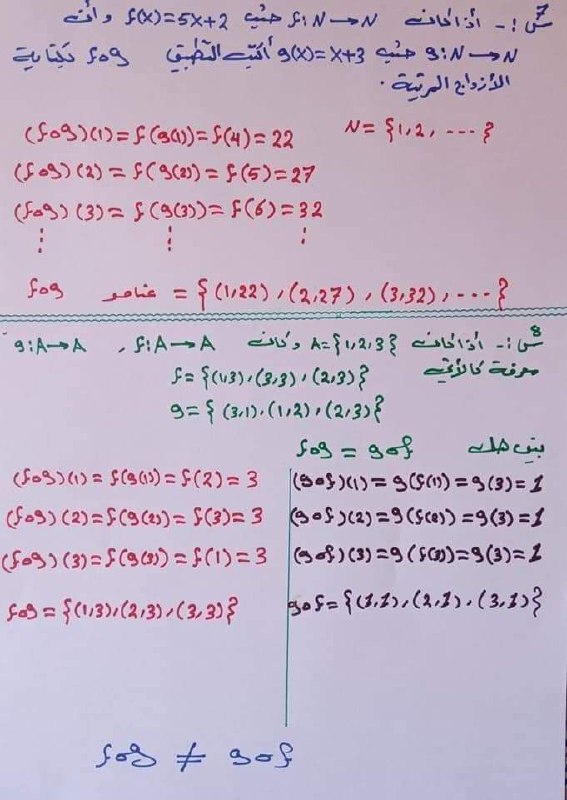 س7 :- اذا كانت f:N→N حيث f(x)=5x+2 وأن
g:N→N حيث g(x)=x+3 أكتب التطبيق fog بكتابة
الأزواج المرتبة.
N={1,2,----}
(fog)(1)=f(g(1))=f(4)=22
(fog)(2)=f(g(2))=f(5)=27
(fog)(3)=f(g(3))=f(6)=32
⋮ ⋮ ⋮
fog عناصر = {(1,22),(2,27),(3,32),----}
س8 :- اذا كانت A={1,2,3} وكانت f:A→A , g:A→A
معرفة كالآتي f={(1,3),(3,3),(2,3)}
g={(3,1),(1,2),(2,3)}
بين هل fog = gof
(fog)(1)=f(g(1))=f(2)=3
(fog)(2)=f(g(2))=f(3)=3
(fog)(3)=f(g(3))=f(1)=3
fog={(1,3),(2,3),(3,3)}
(gof)(1)=g(f(1))=g(3)=1
(gof)(2)=g(f(2))=g(3)=1
(gof)(3)=g(f(3))=g(3)=1
gof={(1,1),(2,1),(3,1)}
fog ≠ gof